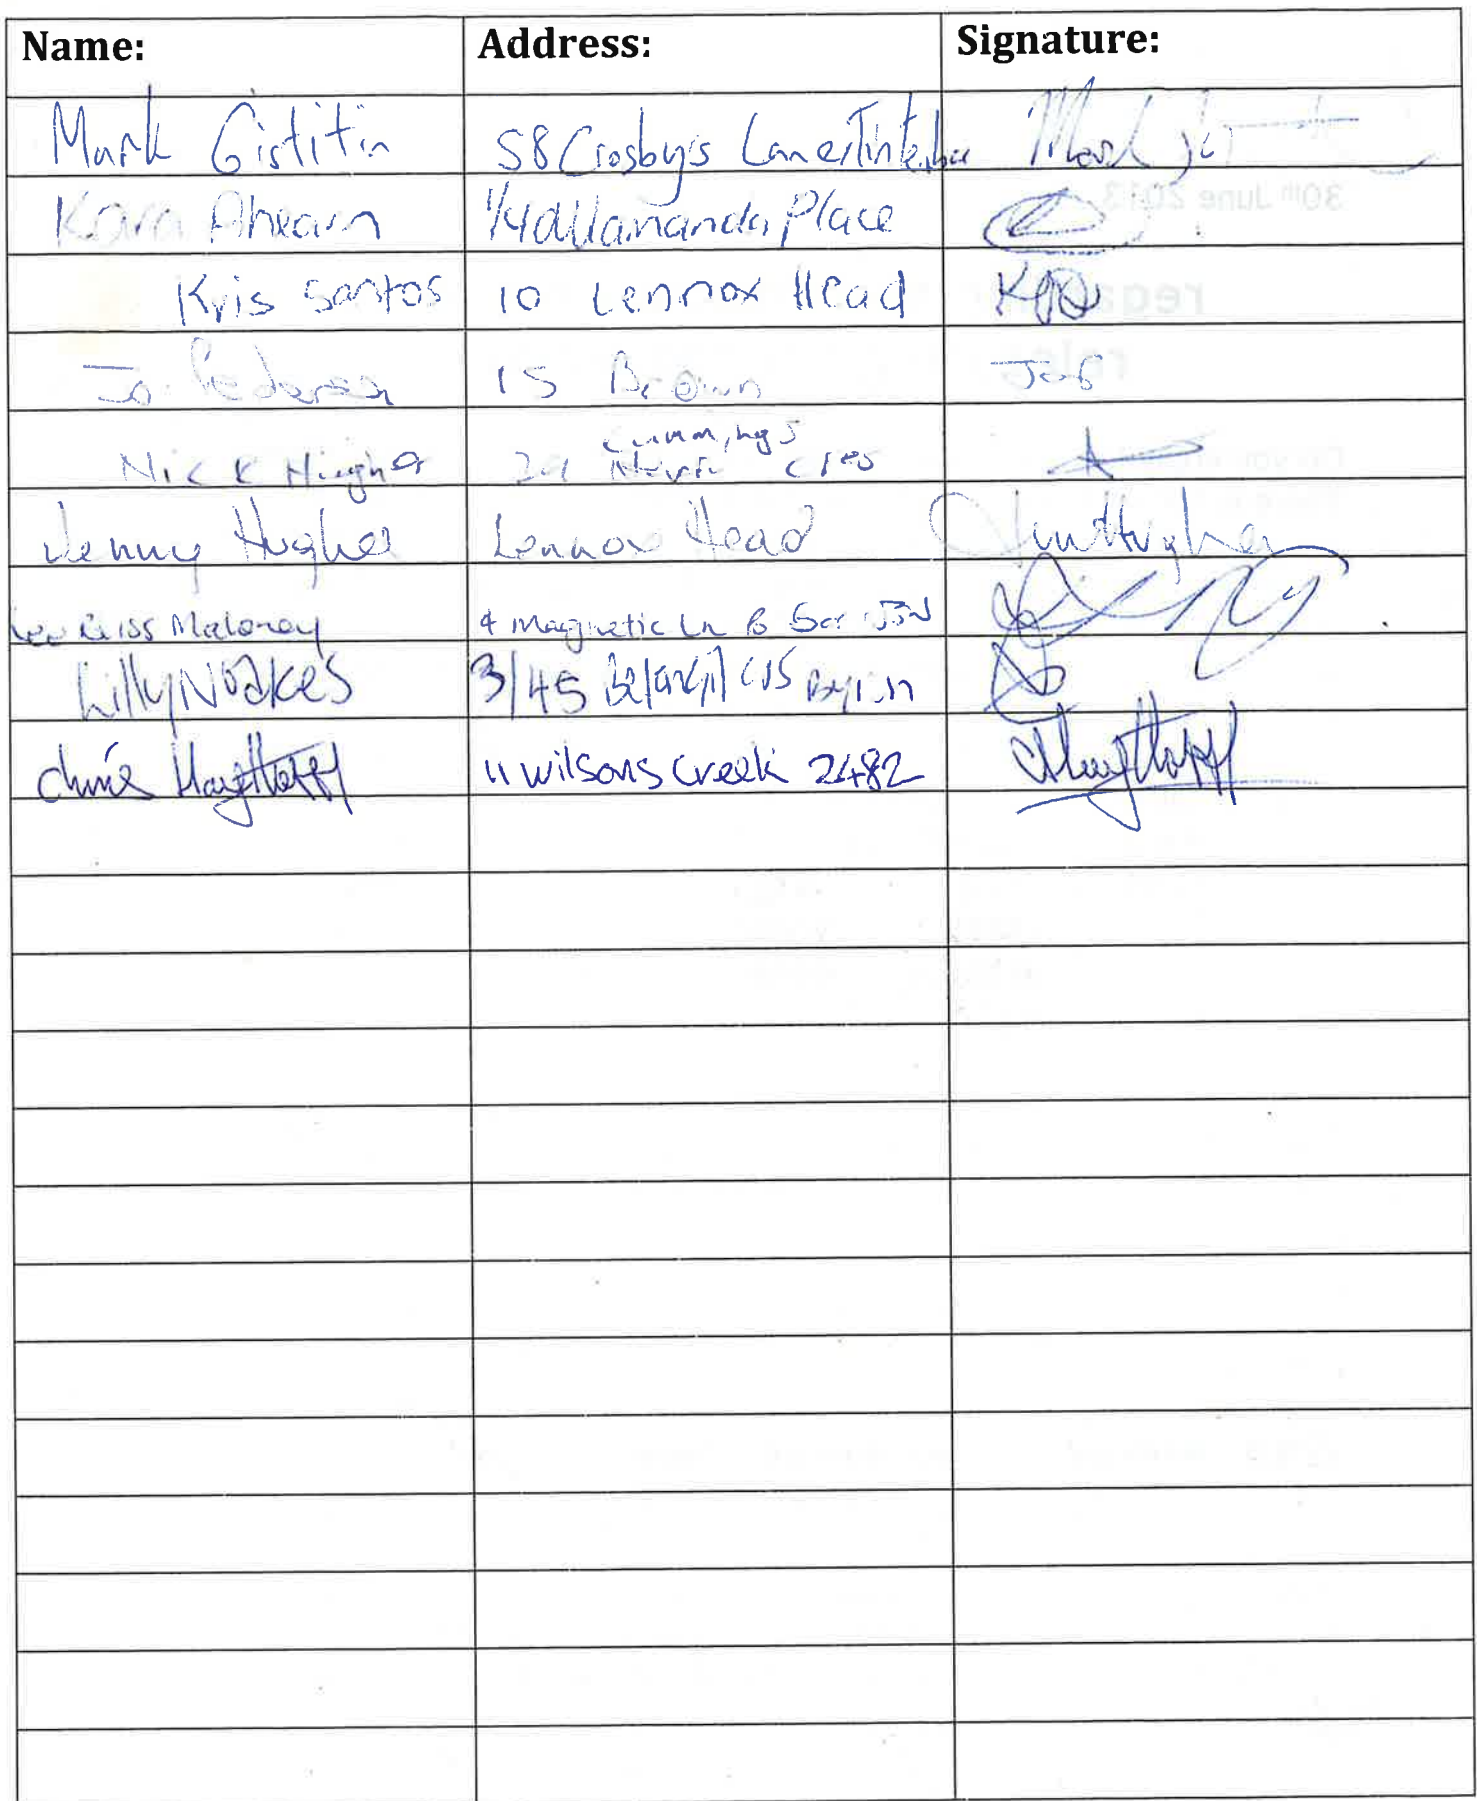 Name: Address: Signature:
Mark Gistitin 58 Crosby's Lane Tintenbar Mark
Kara Ahearn 1/4 allamanda Place
Kris Santos 10 Lennox Head
Jo Pedersen 15 Brown
Nick Cummings
29 Cres
Jenny Hughes Lennox Head Jen Hughes
Maloney 4 Magnetic Ln B
Lilly Noakes 3/45 Belongil Crs Byron
Chris 11 Wilsons Creek 2482